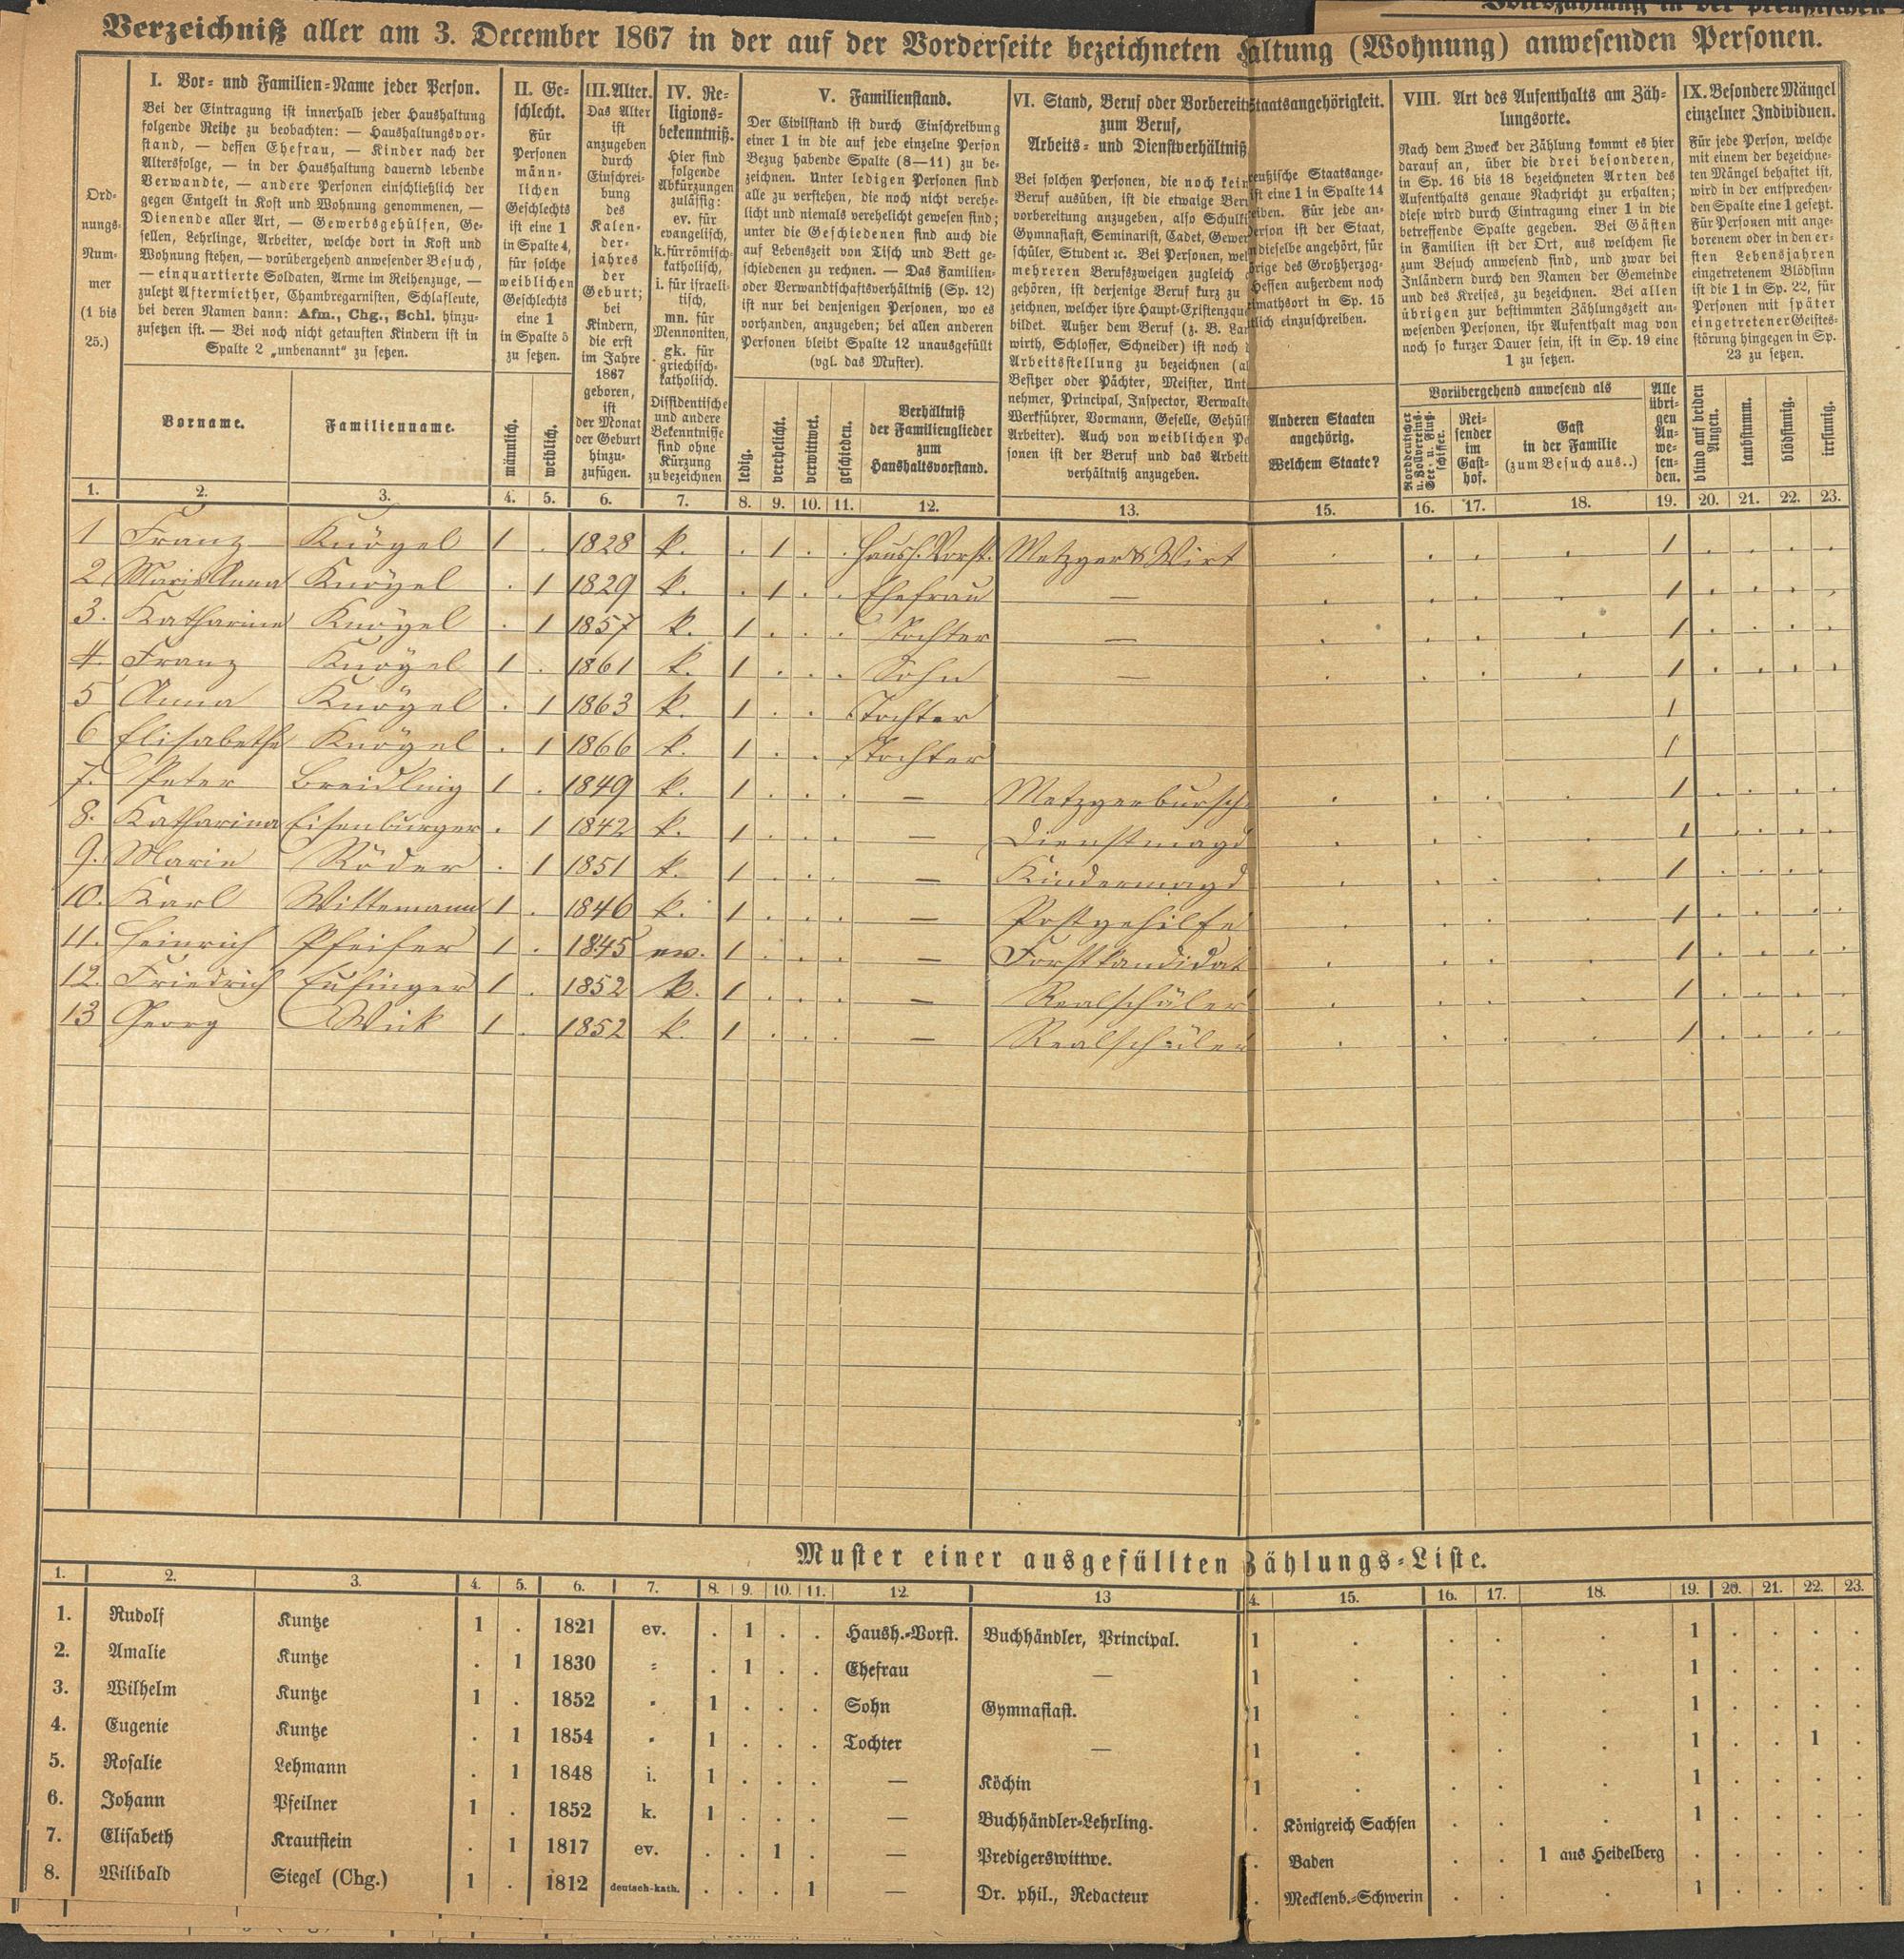 Volkszählung in der preußischen
Verzeichniß aller am 3. December 1867 in der auf der Vorderseite bezeichneten Haltung (Wohnung) anwesenden Personen.
Ord-
nungs-
Num-
mer
(1 bis
25.)
I. Vor- und Familien-Name jeder Person.
Bei der Eintragung ist innerhalb jeder Haushaltung
folgende Reihe zu beobachten: — Haushaltungsvor-
stand, — dessen Ehefrau, — Kinder nach der
Altersfolge, — in der Haushaltung dauernd lebende
Verwandte, — andere Personen einschließlich der
gegen Entgelt in Kost und Wohnung genommenen, —
Dienende aller Art, — Gewerbsgehülfen, Ge-
sellen, Lehrlinge, Arbeiter, welche dort in Kost und
Wohnung stehen, — vorübergehend anwesender Besuch,
— einquartierte Soldaten, Arme im Reihenzuge, —
zuletzt Aftermiether, Chambregarnisten, Schlafleute,
bei deren Namen dann: Afm., Chg., Schl. hinzu-
zusetzen ist. — Bei noch nicht getauften Kindern ist in
Spalte 2 „unbenannt“ zu setzen.
Vorname.
Familienname.
II. Ge-
schlecht.
Für
Personen
männ-
lichen
Geschlechts
ist eine 1
in Spalte 4,
für solche
weiblichen
Geschlechts
eine 1
in Spalte 5
zu setzen.
männlich.
weiblich.
III. Alter.
Das Alter
ist
anzugeben
durch
Einschrei-
bung
des
Kalen-
der-
jahres
der
Geburt;
bei
Kindern,
die erst
im Jahre
1867
geboren,
ist
der Monat
der Geburt
hinzu-
zufügen.
IV. Re-
ligions-
bekenntniß.
Hier sind
folgende
Abkürzungen
zulässig:
ev. für
evangelisch,
k. für römisch-
katholisch,
i. für israeli-
tisch,
mn. für
Mennoniten,
gk. für
griechisch-
katholisch.
Dissidentische
und andere
Bekenntnisse
sind ohne
Kürzung
zu bezeichnen
V. Familienstand.
Der Civilstand ist durch Einschreibung
einer 1 in die auf jede einzelne Person
Bezug habende Spalte (8—11) zu be-
zeichnen. Unter ledigen Personen sind
alle zu verstehen, die noch nicht verehe-
licht und niemals verehelicht gewesen sind;
unter die Geschiedenen sind auch die
auf Lebenszeit von Tisch und Bett ge-
schiedenen zu rechnen. — Das Familien-
oder Verwandtschaftsverhältniß (Sp. 12)
ist nur bei denjenigen Personen, wo es
vorhanden, anzugeben; bei allen anderen
Personen bleibt Spalte 12 unausgefüllt
(vgl. das Muster).
ledig.
verehelicht.
verwittwet.
geschieden.
Verhältniß
der Familienglieder
zum
Haushaltsvorstand.
VI. Stand, Beruf oder Vorbereitn
zum Beruf,
Arbeits- und Dienstverhältniß
Bei solchen Personen, die noch kein
Beruf ausüben, ist die etwaige Ber
vorbereitung anzugeben, also Schull
Gymnasiast, Seminarist, Cadet, Gewer
schüler, Student ꝛc. Bei Personen, wel
mehreren Berufszweigen zugleich
gehören, ist derjenige Beruf kurz zu
zeichnen, welcher ihre Haupt-Existenzque
bildet. Außer dem Beruf (z. B. Lan
wirth, Schlosser, Schneider) ist noch
Arbeitsstellung zu bezeichnen (al
Besitzer oder Pächter, Meister, Unt
nehmer, Principal, Inspector, Verwalt
Werkführer, Vormann, Geselle, Gehül
Arbeiter). Auch von weiblichen Pe
sonen ist der Beruf und das Arbeit
verhältniß anzugeben.
taatsangehörigkeit.
eußische Staatsange-
ist eine 1 in Spalte 14
eiben. Für jede an-
erson ist der Staat,
dieselbe angehört, für
rige des Großherzog-
Hessen außerdem noch
imathsort in Sp. 15
tlich einzuschreiben.
Anderen Staaten
angehörig.
Welchem Staate?
VIII. Art des Aufenthalts am Zäh-
lungsorte.
Nach dem Zweck der Zählung kommt es hier
darauf an, über die drei besonderen,
in Sp. 16 bis 18 bezeichneten Arten des
Aufenthalts genaue Nachricht zu erhalten;
diese wird durch Eintragung einer 1 in die
betreffende Spalte gegeben. Bei Gästen
in Familien ist der Ort, aus welchem sie
zum Besuch anwesend sind, und zwar bei
Inländern durch den Namen der Gemeinde
und des Kreises, zu bezeichnen. Bei allen
übrigen zur bestimmten Zählungszeit an-
wesenden Personen, ihr Aufenthalt mag von
noch so kurzer Dauer sein, ist in Sp. 19 eine
1 zu setzen.
Vorübergehend anwesend als
Norddeutscher
u. Zollvereins-
See- u. Fluß-
schiffer.
Rei-
sender
im
Gast-
hof.
Gast
in der Familie
(zum Besuch aus..)
Alle
übri-
gen
An-
we-
sen-
den.
IX. Besondere Mängel
einzelner Individuen.
Für jede Person, welche
mit einem der bezeichne-
ten Mängel behaftet ist,
wird in der entsprechen-
den Spalte eine 1 gesetzt.
Für Personen mit ange-
borenem oder in den er-
sten Lebensjahren
eingetretenem Blödsinn
ist die 1 in Sp. 22, für
Personen mit später
eingetretener Geistes-
störung hingegen in Sp.
23 zu setzen.
blind auf beiden
Augen.
taubstumm.
blödsinnig.
irrsinnig.
1. 2. 3. 4. 5. 6. 7. 8. 9. 10. 11. 12. 13. 15. 16. 17. 18. 19. 20. 21. 22. 23.
1 Franz Knögel 1 . 1828 k. . 1 . . Haush. Vorst. Metzger & Wirt . . . . 1 . . . .
2 Marie Anna Knögel . 1 1829 k. . 1 . . Ehefrau — . . . . 1 . . . .
3. Katharine Knögel . 1 1857 k. 1 . . . Tochter — . . . . 1 . . . .
4. Franz Knögel 1 . 1861 k. 1 . . . Sohn — . . . . 1 . . . .
5 Anna Knögel . 1 1863 k. 1 . . . Tochter 1
6 Elisabethe Knögel . 1 1866 k. 1 . . Tochter 1
7. Peter Breidling 1 . 1849 k. 1 . . . — Metzgerbursch . . . . 1 . . . .
8. Katharina Eisenburger . 1 1842 k. 1 . . . — Dienstmagd . . . . 1 . . . .
9. Marie Röder . 1 1851 k. 1 . . . — Kindermagd . . . . 1 . . . .
10. Karl Wittemann 1 . 1846 k. 1 . . . — Postgehilfe . . . . 1 . . . .
11. Heinrich Pfeifer 1 . 1845 ev. 1 . . . — Forstkandidat . . . . 1 . . . .
12. Friedrich Eufinger 1 . 1852 k. 1 . . . — Realschüler . . . . 1 . . . .
13 Georg Wick 1 . 1852 k. 1 . . . — Realschüler . . . . 1 . . . .
Muster einer ausgefüllten Zählungs-Liste.
1. 2. 3. 4. 5. 6. 7. 8. 9. 10. 11. 12. 13 4. 15. 16. 17. 18. 19. 20. 21. 22. 23.
1. Rudolf Kuntze 1 . 1821 ev. . 1 . . Haush.-Vorst. Buchhändler, Principal. 1 . . . . 1 . . . .
2. Amalie Kuntze . 1 1830 „ . 1 . . Ehefrau — 1 . . . . 1 . . . .
3. Wilhelm Kuntze 1 . 1852 „ 1 . . . Sohn Gymnasiast. 1 . . . . 1 . . . .
4. Eugenie Kuntze . 1 1854 „ 1 . . . Tochter — 1 . . . . 1 . . 1 .
5. Rosalie Lehmann . 1 1848 i. 1 . . . — Köchin 1 . . . . 1 . . . .
6. Johann Pfeilner 1 . 1852 k. 1 . . . — Buchhändler-Lehrling. . Königreich Sachsen . . . 1 . . . .
7. Elisabeth Krautstein . 1 1817 ev. . . 1 . — Predigerswittwe. . Baden . . 1 aus Heidelberg . . . . .
8. Wilibald Siegel (Chg.) 1 . 1812 deutsch-kath. . . . 1 — Dr. phil., Redacteur . Mecklenb.-Schwerin . . . 1 . . . .